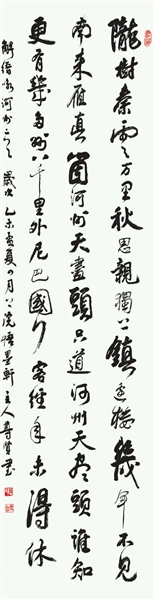 隴樹秦雲万里秋思親獨上鎮邊楼幾年不見
南来雁真箇河州天盡頭只道河州天尽頭誰知
更有幾多州八千里外尼巴國行客經年未得休
解縉咏河州二首 歲次乙未孟夏之月上浣悟墨軒主人壽賢書